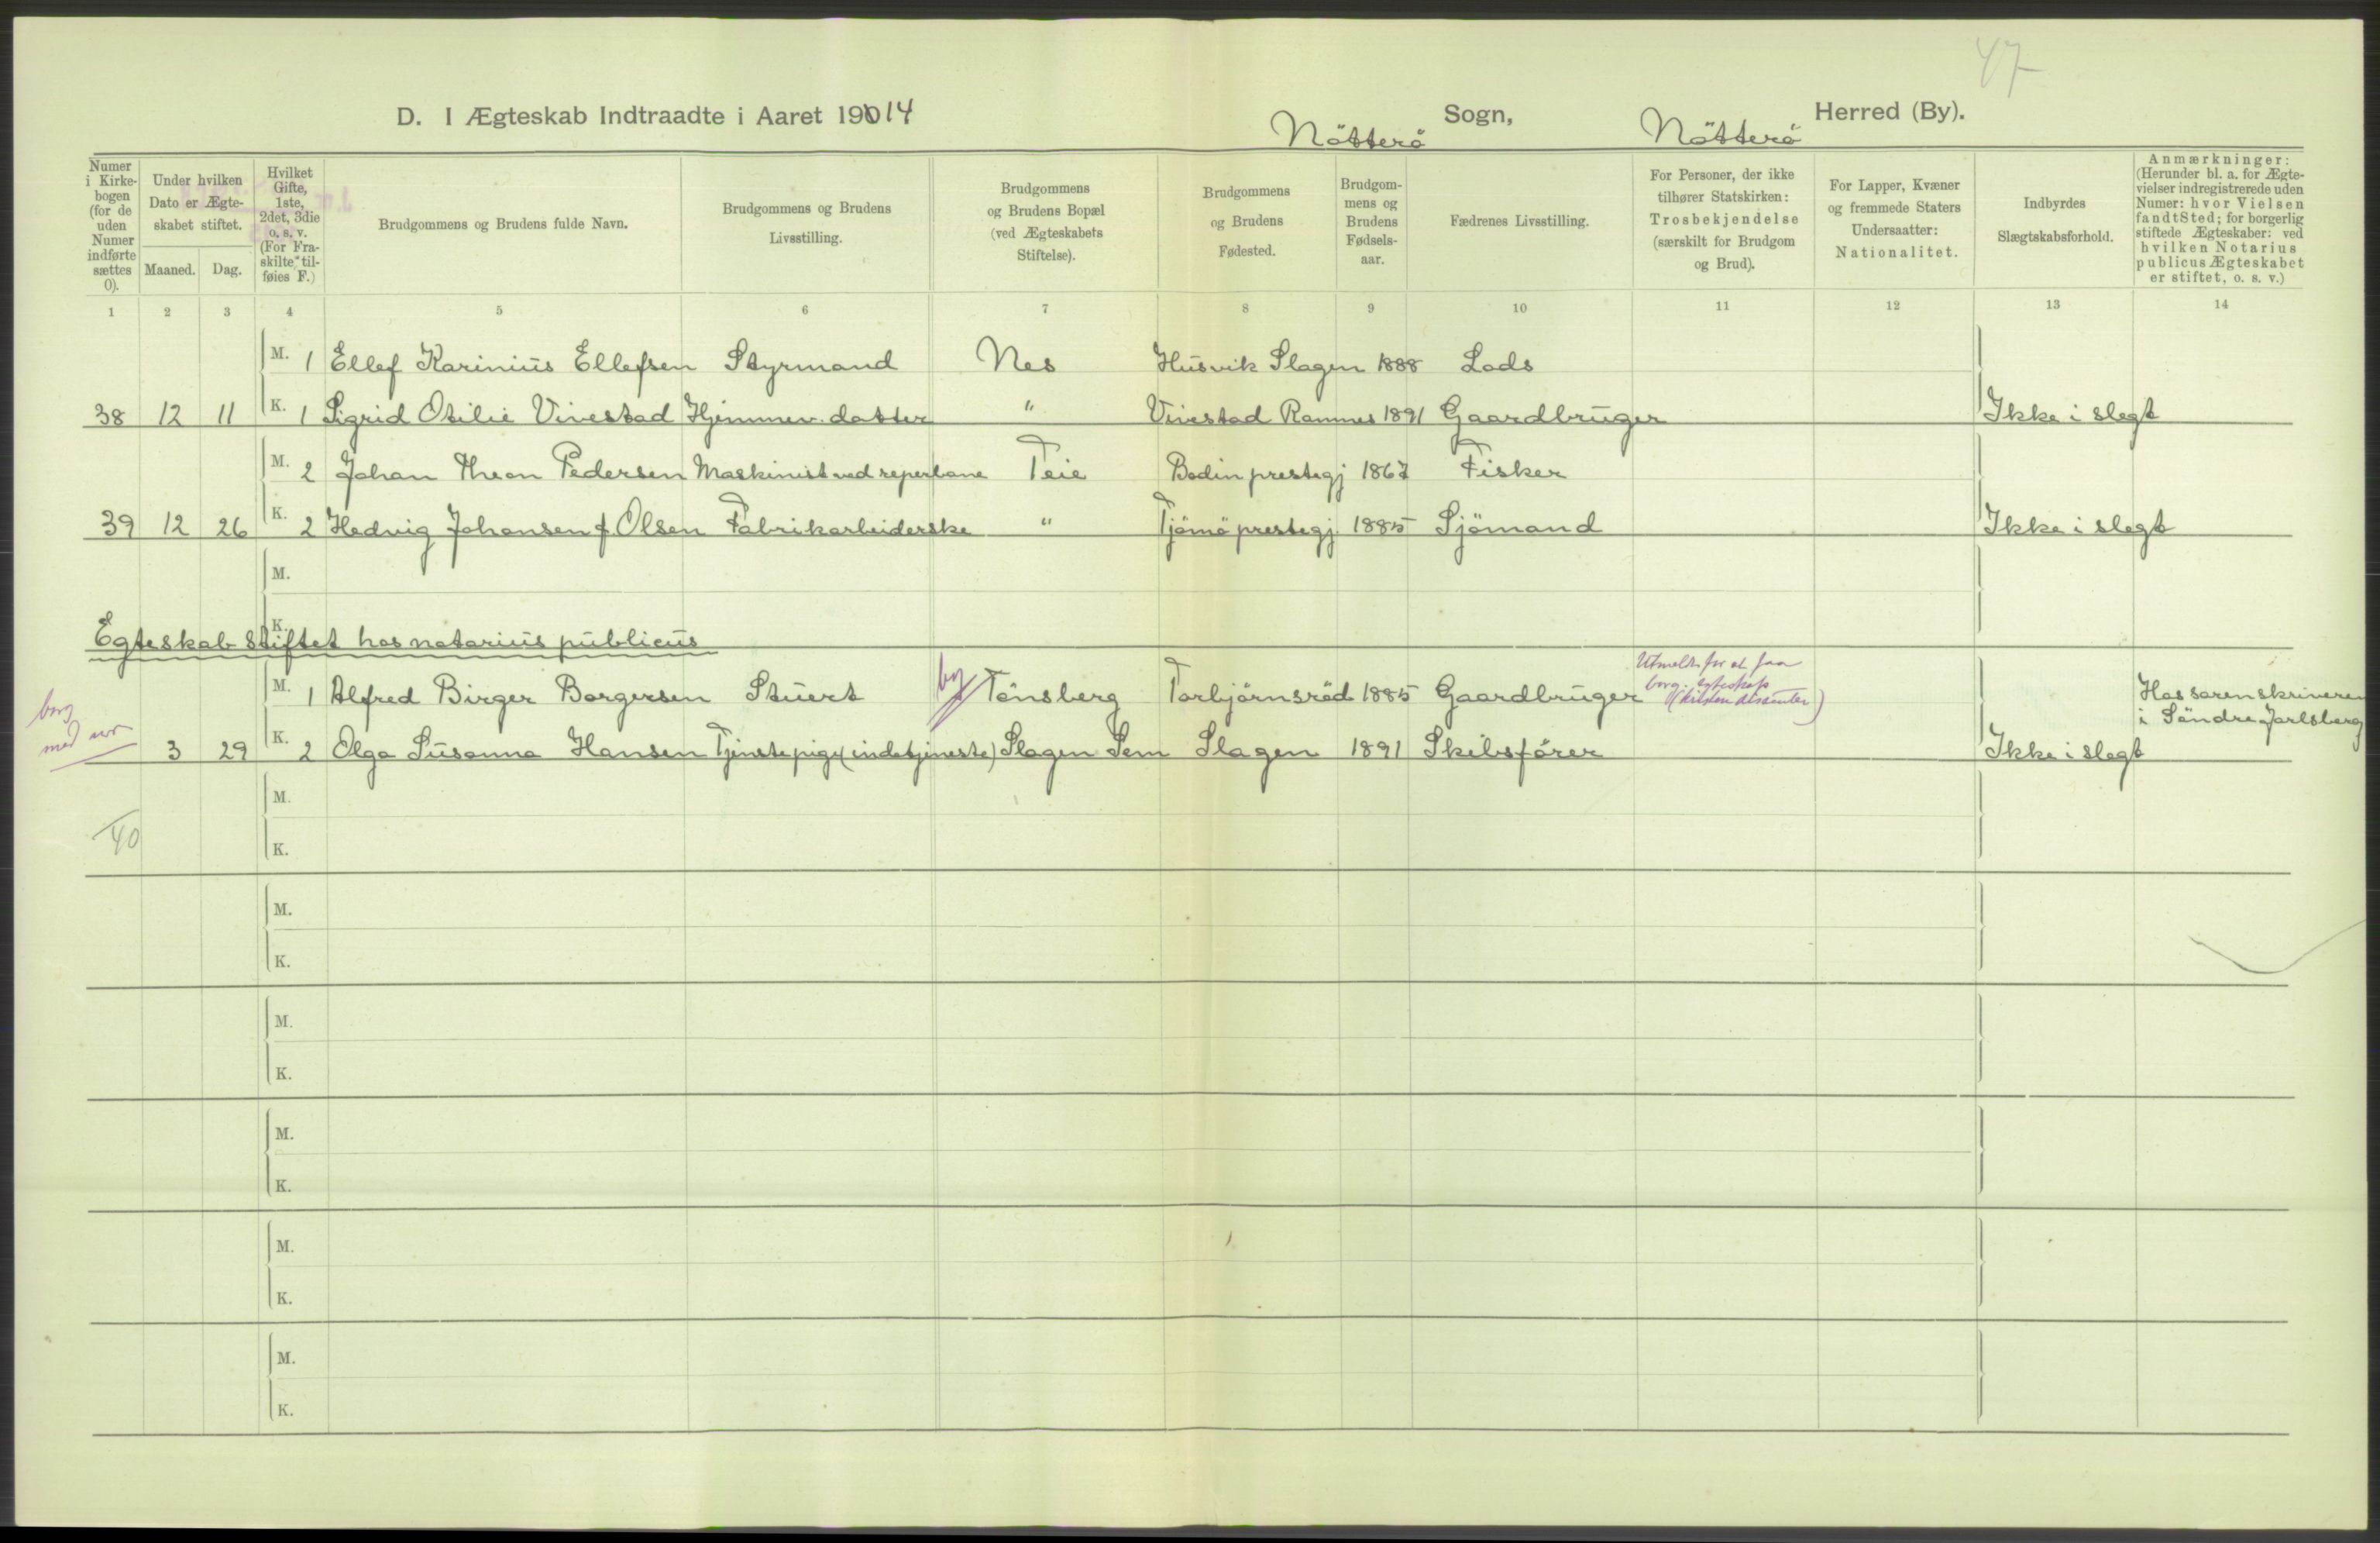 47
D. I Ægteskab Indtraadte i Aaret 19014 Nötterö Sogn, Nötterö Herred (By).
Numer i Kirke-bogen (for de uden Numer indførte sættes 0).
Under hvilken Dato er Ægte-skabet stiftet.
Maaned. Dag.
Hvilket Gifte, 1ste, 2det, 3die o. s. v. (For Fra-skilte tilføies F.)
Brudgommens og Brudens fulde Navn.
Brudgommens og Brudens Livsstilling.
Brudgommens og Brudens Bopæl (ved Ægteskabets Stiftelse).
Brudgommens og Brudens Fødested.
Brudgom-mens og Brudens Fødsels-aar.
Fædrenes Livsstilling.
For Personer, der ikke tilhører Statskirken: Trosbekjendelse (særskilt for Brudgom og Brud).
For Lapper, Kvæner og fremmede Staters Undersaatter: Nationalitet.
Indbyrdes Slægtskabsforhold.
Anmærkninger: (Herunder bl. a. for Ægte-vielser indregistrerede uden Numer: hvor Vielsen fandt Sted; for borgerlig stiftede Ægteskaber: ved hvilken Notarius publicus Ægteskabet er stiftet, o. s. v.)
1 2 3 4 5 6 7 8 9 10 11 12 13 14
M. 1 Ellef Karinius Ellefsen Styrmand Nes Husvik Slagen 1888 Lods
38 12 11 K. 1 Sigrid Otilie Vivestad Hjemmev. datter " Vivestad Ramnes 1891 Gaardbruger Ikke i slegt
M. 2 Johan Theon Pedersen Maskinist ved reperbane Teie Bodin prestegj 1867 Fisker
39 12 26 K. 2 Hedvig Johansen f. Olsen Fabrikarbeiderske " Tjömö prestegj. 1885 Sjömand Ikke i slegt
M.
K.
Egteskab stiftet hos notarius publicus
Utmeldt for at faa
M. 1 Alfred Birger Borgersen Stuert by Tönsberg Torbjörnsröd 1885 Gaardbruger borg. egteskap Hos sorenskriveren
borg (hilsen dissenter) i Söndre Jarlsberg
med nr
3 29 K. 2 Olga Susanna Hansen Tjenestepige (indetjeneste) Slagen Sem Slagen 1891 Skibsförer Ikke i slegt
M.
40 K.
M.
K.
M.
K.
M.
K.
M.
K.
M.
K.